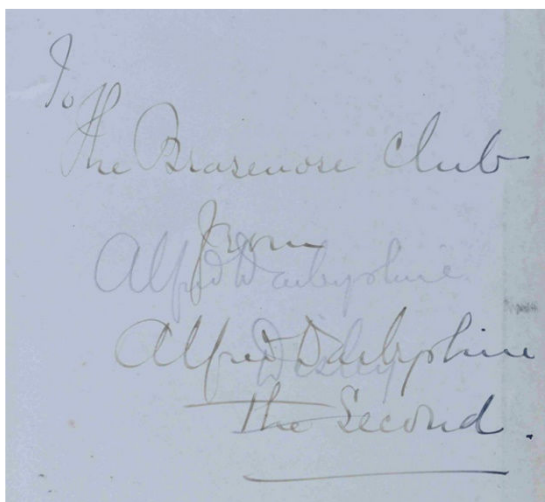 To
The Brasenose Club
from
Alfred Darbyshire
Alfred Darbyshire
The Second.